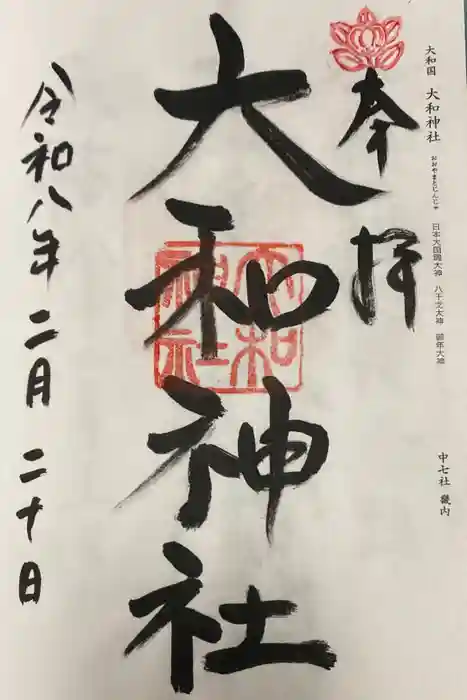 大和国 大和神社 おおやまとじんじゃ 日本大国魂大神 八千戈大神 御年大神
中七社 畿内
奉拝
大和神社
大和神社
令和八年 二月 二十日